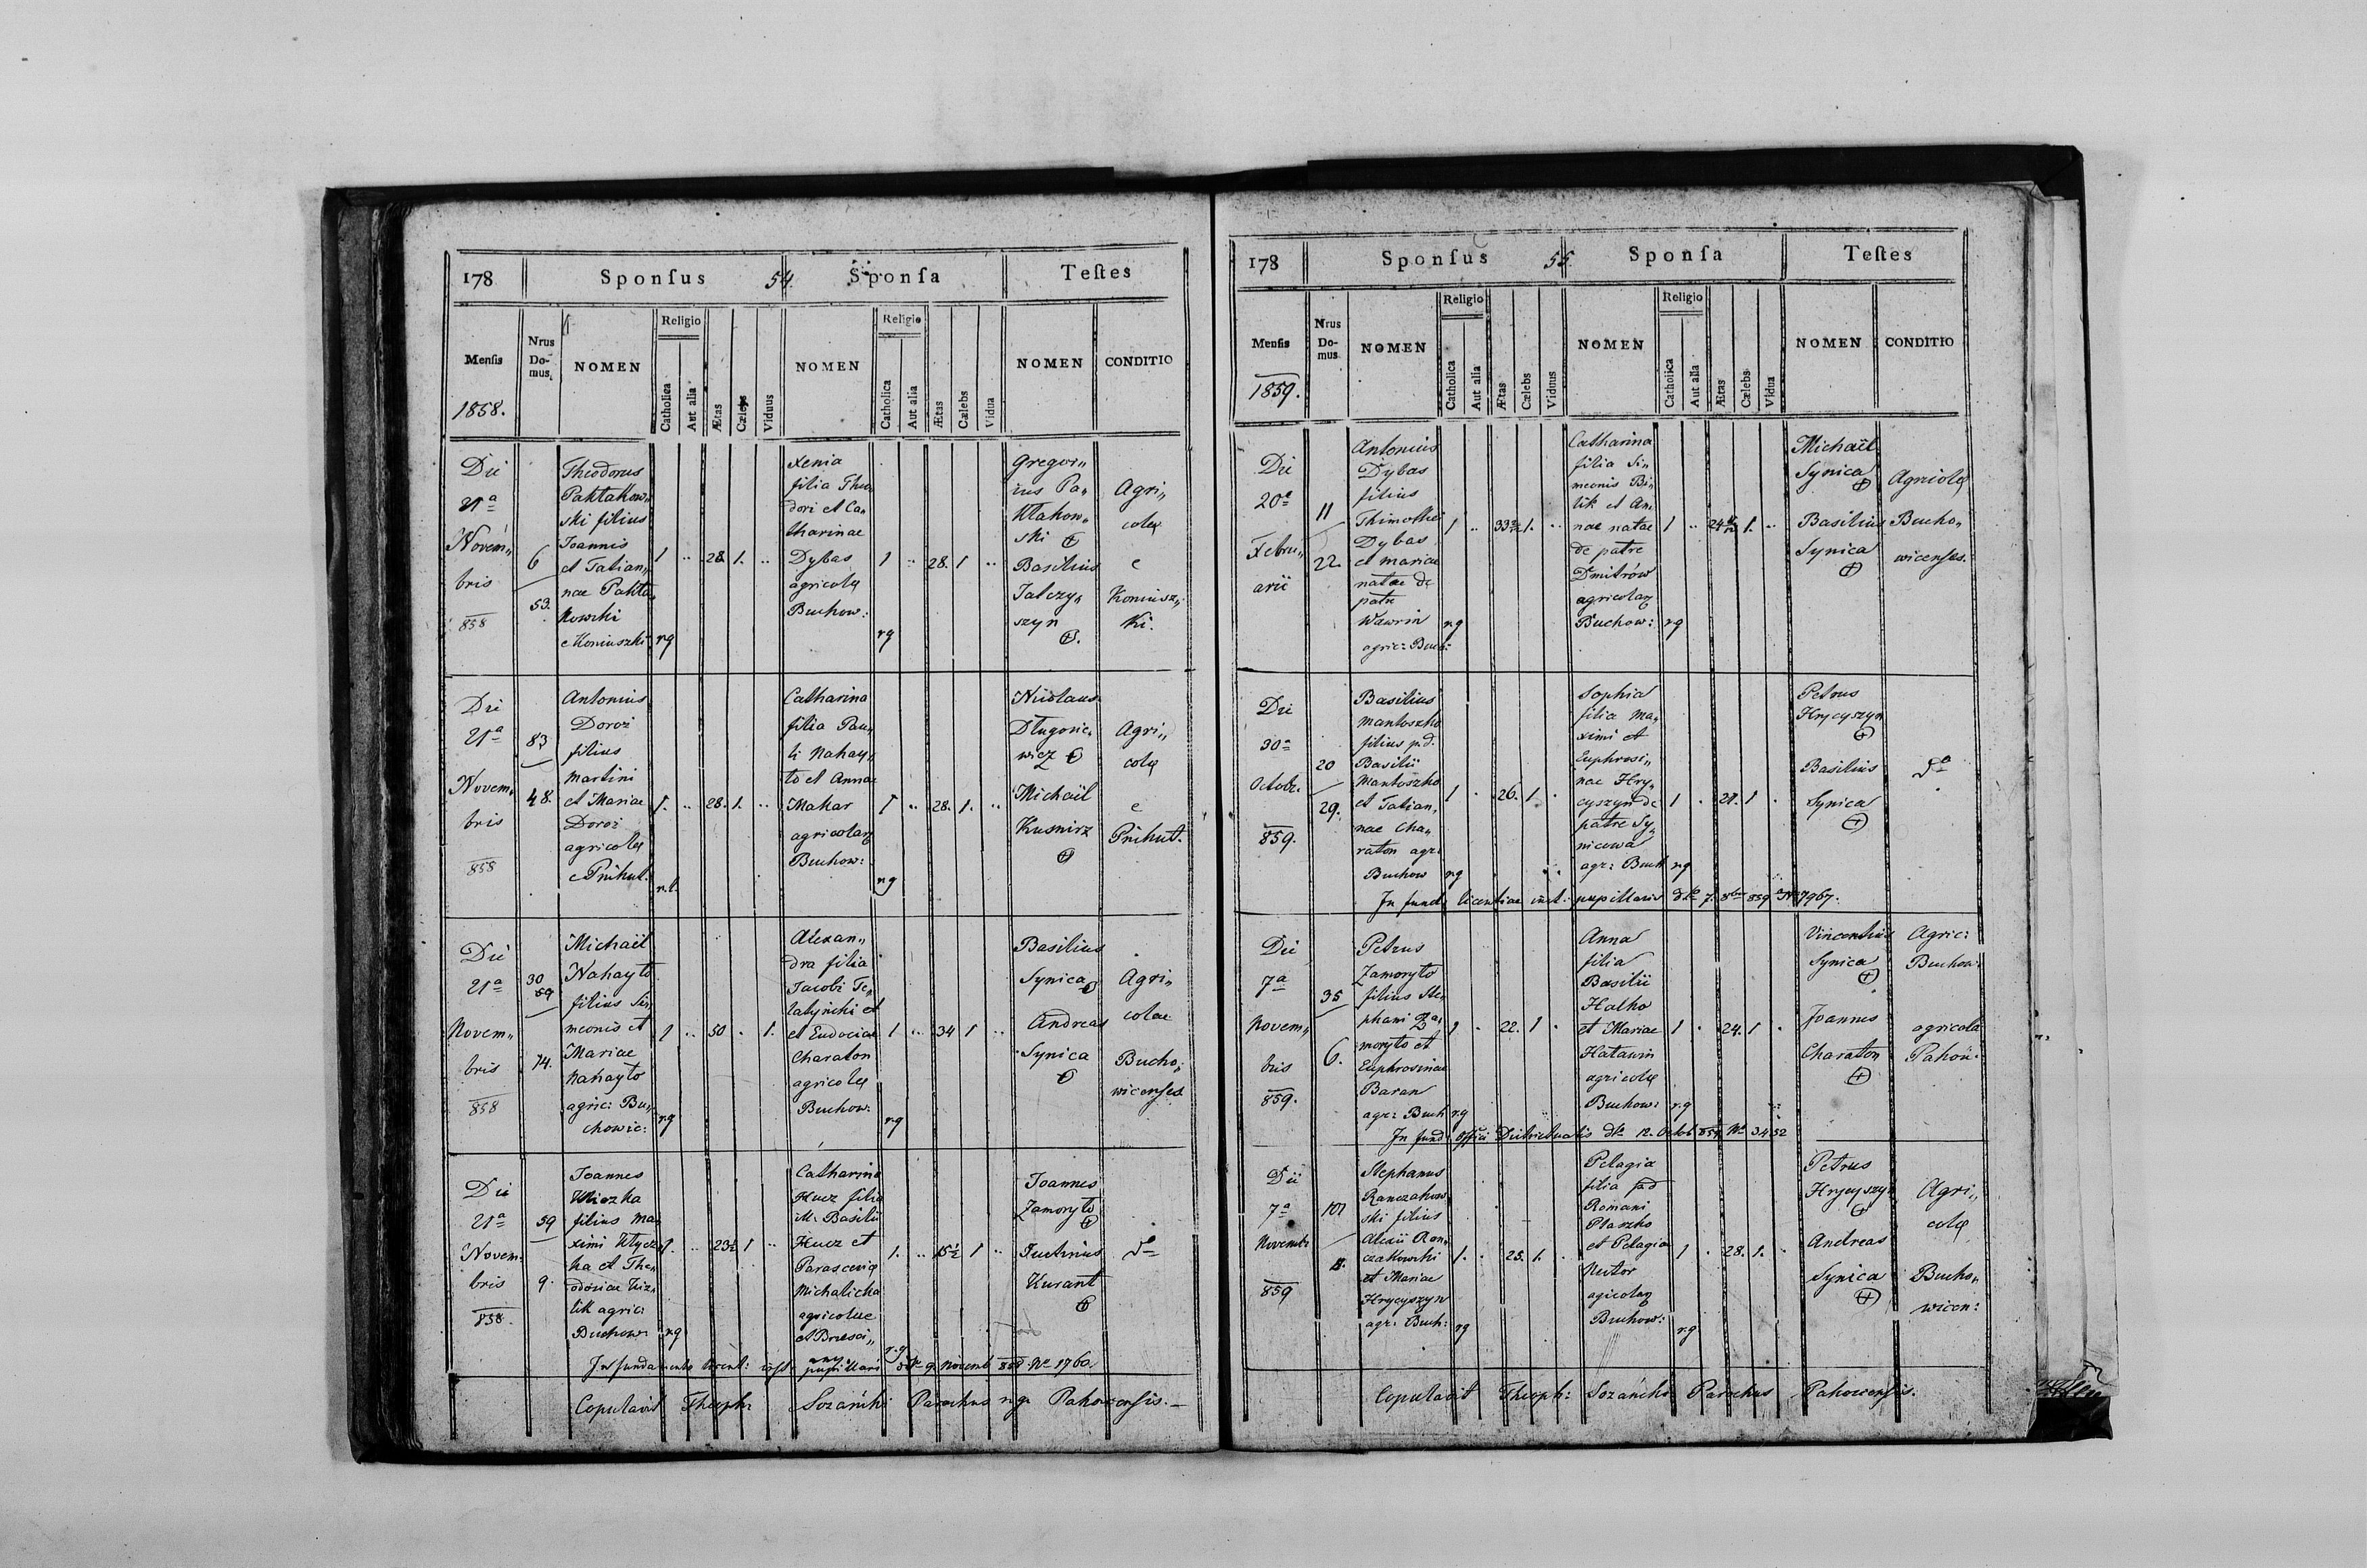 178
Sponſus
54.
Sponſa
Teſtes
Menſis
1858.
Nrus
Do-
mus.
NOMEN
Religio
Catholica
Aut alia
Ætas
Cælebs
Viduus
NOMEN
Religio
Catholica
Aut alia
Ætas
Cælebs
Vidua
NOMEN
CONDITIO
Die
21ª
Novem„
bris
858
6
53.
Theodorus
Paktakow„
ski filius
Joannis
et Tatian„
nae Pakta„
kowski
e Koniuszki
rg
1 .. 28. 1. ..
Xenia
filia Theo„
dori et Ca„
tharinae
Dybas
agricolę
Buchow:
rg
1 .. 28. 1 ..
Gregor„
ius Pa„
ktakow„
ski
Basilius
Jalczy„
szyn
Agri„
colę
e
Koniusz„
ki.
Die
21ª
Novem„
bris
858
83
48.
Antonius
Doroż
filius
Martini
et Mariae
Doroż
agricolę
e Prihut.
1. .. 28. 1. ..
Catharina
filia Pau„
li Nahay„
to et Annae
Makar
agricolarꝫ
Buchow:
rg
1 .. 28. 1. ..
Nicolaus
Długonie„
wicz
Michaël
Kusnirz
Agri„
colę
e
Prihut.
Die
21ª
Novem„
bris
858
30
59
74.
Michaël
Nahayto
filius Si„
meonis et
Mariae
Nahayto
agric: Bu„
chowic:
rg
1 .. 50 . 1.
Alexan„
dra filia
Jacobi
et Eudociae
Charaton
agricolę
Buchow:
rg
1 .. 34 1 ..
Basilius
Synica
Andreas
Synica
Agri„
colae
Bucho„
wicenses
Die
21ª
Novem„
bris
858.
59
9.
Joannes
filius Ma„
ximi
ka et The„
odosiae
lik agric:
Buchow:
rg
1. .. 23½ 1 ..
Catharina
Hucz filia
Basilii
Hucz et
Parascevię
Michalicha
agricolae
rg
1. .. 15½ 1 ..
Joannes
Zamoryto
Justinus
Kurant
dº
In fundamento licent: inst: pupillari dtº 9 Novemb 858 Nº 1760.
Copulavit Theoph: Sozański Parochus rg. Pahowensis.
178
Sponſus
55.
Sponſa
Teſtes
Menſis
1859.
Nrus
Do-
mus
NOMEN
Religio
Catholica
Aut alia
Ætas
Cælebs
Viduus
NOMEN
Religio
Catholica
Aut alia
Ætas
Cælebs
Vidua
NOMEN
CONDITIO
Die
20ª
Febru„
arii
11
22.
Antonius
Dybas
filius
Thimothei
Dybas
et Mariae
natae de
patre
Wawrin
agric: Buch:
rg
1 .. 33 1. ..
Catharina
filia Si„
meonis Bi„
lik et An„
nae natae
de patre
Dmitrów
agricolarꝫ
Buchow:
rg
1 .. 24 1. ..
Michaël
Synica
Basilius
Synica
Agricolę
Bucho„
wicenses.
Die
30ª
Octobr.
859.
20
29.
Basilius
Mantoszko
filius p.d.
Basilii
Mantoszko
et Tatian„
nae Cha„
raton agr:
Buchow
rg
1 . 26. 1. .
Sophia
filia Ma„
ximi et
Euphrosi„
nae Hry„
cyszyn de
patre Sy„
nicowa
agr: Buch
rg
1 . 21. 1 .
Petrus
Hrycyszyn
Basilius
Synica
dº
In fund: licentiae inst: pupillaris dtº 7. 8bris 859 Nº 7967.
Die
7ª
Novem„
bris
859.
35
6.
Petrus
Zamoryto
filius Ste„
phani Za„
moryto et
Euphrosinae
Baran
agr: Buch
rg
1 . 22. 1 .
Anna
filia
Basilii
Halko
et Mariae
Hatawin
agricolę
Buchow:
rg
1 . 24. 1 .
Vincentius
Synica
Joannes
Charaton
Agric:
Buchow:
agricola
Pahow:
In fund: Offici Districtualis dtº 12. Octob 859 Nº 3452
Die
7ª
Novemb:
859
107
Stephanus
Ranczakow
ski filius
Alexii Ran„
czakowski
et Mariae
Hrycyszyn
agr: Buch:
rg
1. . 25. 1. .
Pelagia
filia p.d
Romani
Ptaszko
et Pelagia
agicolarꝫ
Buchow:
rg
1 . 28. 1. .
Petrus
Hrycyszyn
Andreas
Synica
Agri„
colę
Bucho„
wicen:
Copulavit Theoph: Sozański Parochus Pahowensis.